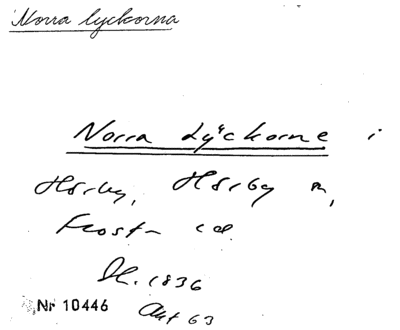 Norra lyckorna
Norra Lyckorne i
Hörby, Hörby sn,
Frosta hd.
Sk. 1836
Nr 10446
Akt 63